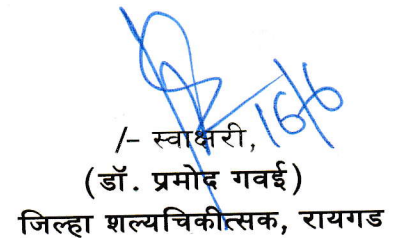 16/6
/- स्वाक्षरी,
(डॉ. प्रमोद गवई)
जिल्हा शल्यचिकीत्सक, रायगड